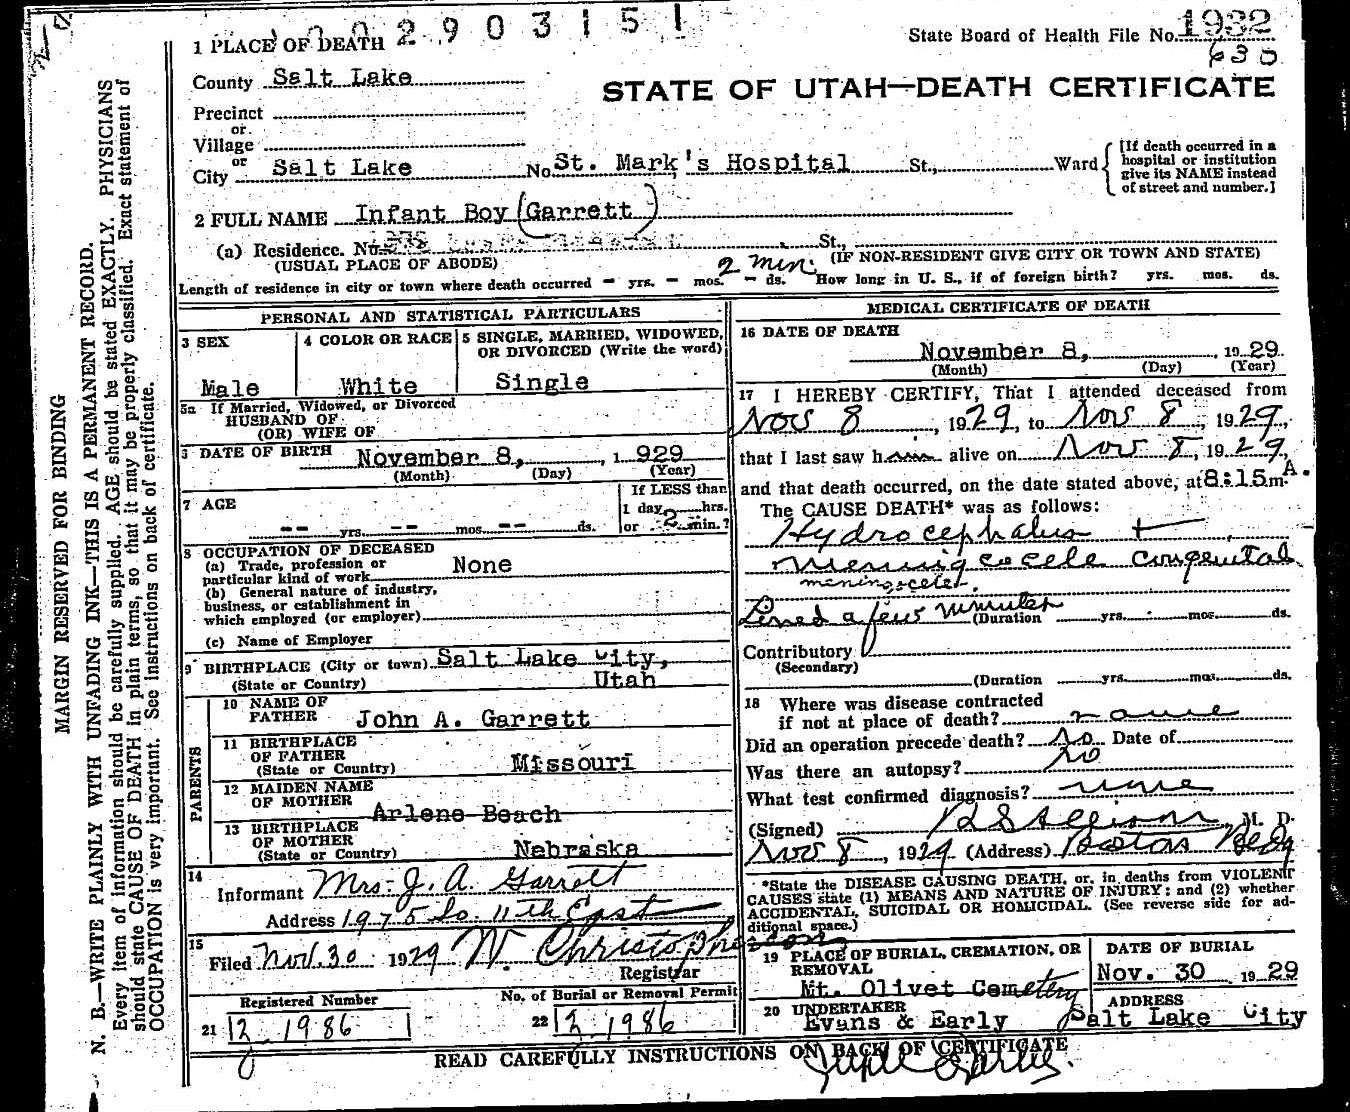 0 0 2 9 0 3 1 5 1
State Board of Health File No. 1932
630
1 PLACE OF DEATH
County Salt Lake
STATE OF UTAH—DEATH CERTIFICATE
Precinct
or
Village
or
City Salt Lake No. St. Mark's Hospital St., Ward
[If death occurred in a hospital or institution give its NAME instead of street and number.]
2 FULL NAME Infant Boy (Garrett)
(a) Residence. No. St.,
(USUAL PLACE OF ABODE) (IF NON-RESIDENT GIVE CITY OR TOWN AND STATE)
2 min.
Length of residence in city or town where death occurred - yrs. - mos. - ds. How long in U. S., if of foreign birth? yrs. mos. ds.
PERSONAL AND STATISTICAL PARTICULARS
3 SEX
Male
4 COLOR OR RACE
White
5 SINGLE, MARRIED, WIDOWED,
OR DIVORCED (Write the word)
Single
5a If Married, Widowed, or Divorced
HUSBAND OF
(OR) WIFE OF
DATE OF BIRTH November 8, 1 929
(Month) (Day) (Year)
7 AGE
-- yrs. -- mos. -- ds.
If LESS than
1 day, hrs.
or 2 min.?
8 OCCUPATION OF DECEASED
(a) Trade, profession or
particular kind of work None
(b) General nature of industry,
business, or establishment in
which employed (or employer)
(c) Name of Employer
9 BIRTHPLACE (City or town) Salt Lake City,
(State or Country) Utah
PARENTS
10 NAME OF
FATHER John A. Garrett
11 BIRTHPLACE
OF FATHER
(State or Country) Missouri
12 MAIDEN NAME
OF MOTHER Arlene Beach
13 BIRTHPLACE
OF MOTHER
(State or Country) Nebraska
14
Informant Mrs. J. A. Garrett
Address 1975 So. 11th East
15
Filed Nov. 30 1929 W. Christopherson
Registrar
Registered Number
21 12 1986
No. of Burial or Removal Permit
22 12 1986
MEDICAL CERTIFICATE OF DEATH
16 DATE OF DEATH
November 8, 1929
(Month) (Day) (Year)
17 I HEREBY CERTIFY, That I attended deceased from
Nov 8, 1929, to Nov 8, 1929,
that I last saw him alive on Nov 8, 1929,
and that death occurred, on the date stated above, at 8:15 m A.
The CAUSE DEATH* was as follows:
Hydrocephalus +
Meningocele congenital
meningocele.
Lived a few minutes
(Duration yrs. mos. ds.
Contributory
(Secondary)
(Duration yrs. mos. ds.
18 Where was disease contracted
if not at place of death? none
Did an operation precede death? No Date of
Was there an autopsy? No
What test confirmed diagnosis? none
(Signed) R S Allison, M. D.
Nov 8, 1929 (Address) Boston Bldg
*State the DISEASE CAUSING DEATH, or, in deaths from VIOLENT
CAUSES state (1) MEANS AND NATURE OF INJURY; and (2) whether
ACCIDENTAL, SUICIDAL OR HOMICIDAL. (See reverse side for ad-
ditional space.)
19 PLACE OF BURIAL, CREMATION, OR
REMOVAL
Mt. Olivet Cemetery
DATE OF BURIAL
Nov. 30 1929
20 UNDERTAKER
Evans & Early
ADDRESS
Salt Lake City
READ CAREFULLY INSTRUCTIONS ON BACK OF CERTIFICATE
MARGIN RESERVED FOR BINDING
N. B.—WRITE PLAINLY WITH UNFADING INK—THIS IS A PERMANENT RECORD.
Every item of information should be carefully supplied. AGE should be stated EXACTLY. PHYSICIANS
should state CAUSE OF DEATH in plain terms, so that it may be properly classified. Exact statement of
OCCUPATION is very important. See instructions on back of certificate.